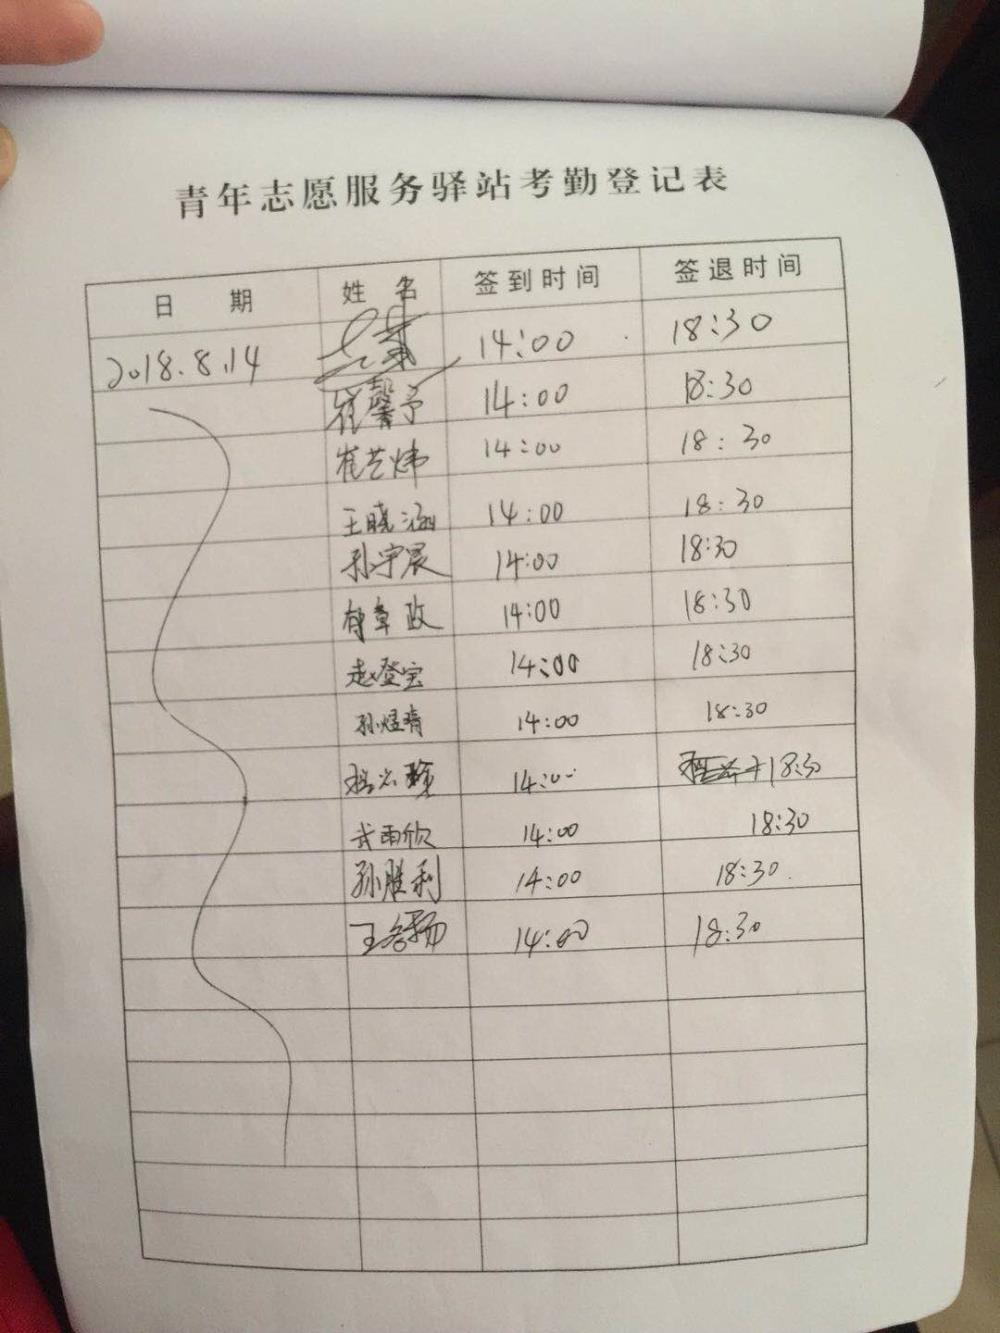 青年志愿服务驿站考勤登记表
日 期 姓 名 签到时间 签退时间
2018.8.14 14:00 18:30
崔馨予 14:00 18:30
崔艺炜 14:00 18:30
王晓涵 14:00 18:30
孙宇晨 14:00 18:30
郁章政 14:00 18:30
赵登宝 14:00 18:30
孙煜晴 14:00 18:30
14:00 18:30
武雨欣 14:00 18:30
孙胜利 14:00 18:30
王 扬 14:00 18:30